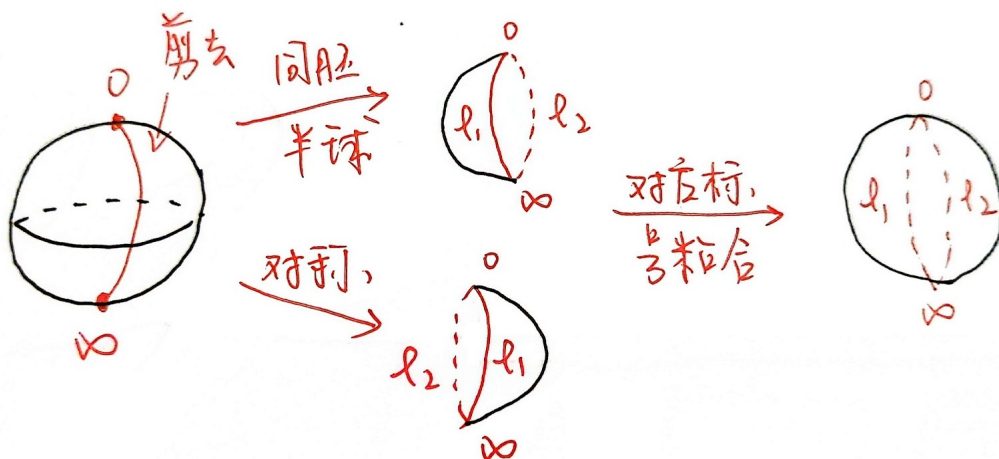 剪去
0
∞
同胚
半球
0
l₁
l₂
∞
对
0
l₂
l₁
∞
对应标
号粘合
0
l₁
l₂
∞